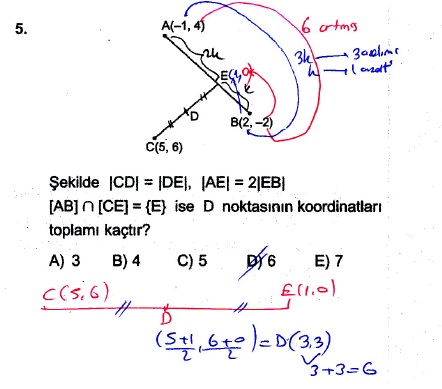 5.
A(-1, 4)
6 artmış
2k
3k → 3 azalmış
k → 1 azalt
E(1, 0)
k
D
B(2, -2)
C(5, 6)
Şekilde |CD| = |DE|, |AE| = 2|EB|
[AB] ∩ [CE] = {E} ise D noktasının koordinatları
toplamı kaçtır?
A) 3 B) 4 C) 5 D) 6 E) 7
C(5, 6) E(1, 0)
D
(5+1/2, 6+0/2) = D(3,3)
3+3=6